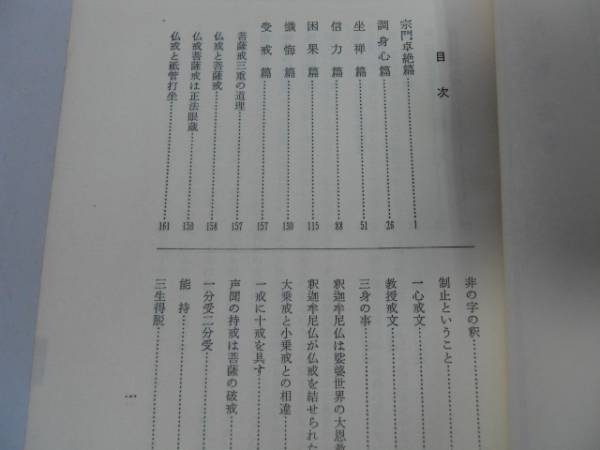 目次
宗門卓絶篇……1
調身心篇……26
坐禅篇……51
信力篇……88
因果篇……115
懺悔篇……130
受戒篇……157
菩薩戒三重の道理……157
仏戒と菩薩戒……158
仏戒菩薩戒は正法眼蔵……159
仏戒と祗管打坐……161
非の字の釈……
制止ということ……
一心戒文……
教授戒文……
三身の事……
釈迦牟尼仏は娑婆世界の大恩教
釈迦牟尼仏が仏戒を結せられた
大乗戒と小乗戒との相違……
一戒に十戒を具す……
声聞の持戒は菩薩の破戒……
一分受二分受……
能持……
三生得脱……